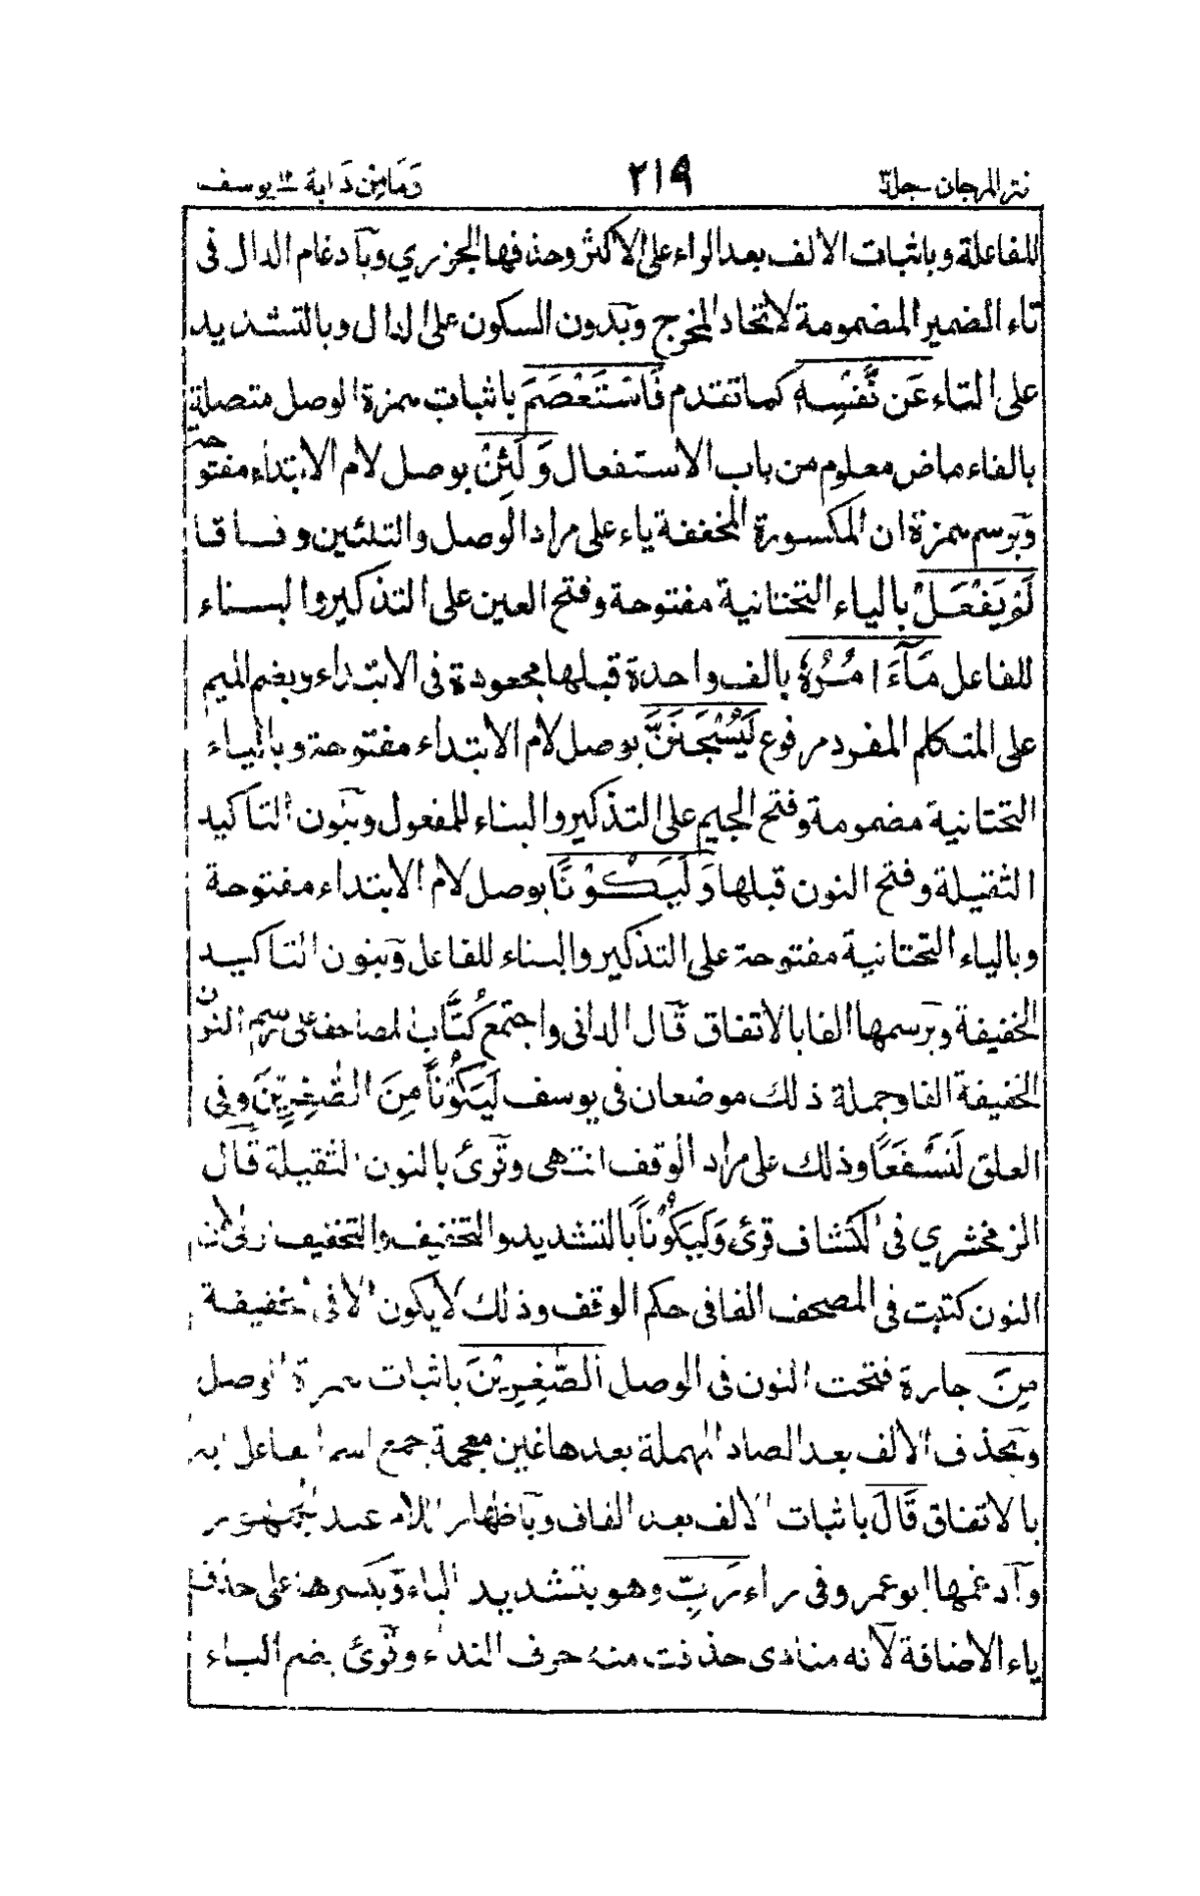 نثر المرجان جلد٣ ٢١٩ وَمَا مِنْ دَابة ١٢ يوسف
للفاعلة وباثبات الالف بعد الراء على الاكثر وحذفها الجزري وبآدغام الدال فى
تاء الضمير المضمومة لاتحاد المخرج وبدون السكون على الدال وبالتشديد
على التاء عَن نَّفْسِهٖ كما تقدم فَاسْتَعْصَمَ باثبات همزة الوصل متصلة
بالفاء ماض معلوم من باب الاستفعال وَلَئِنْ بوصل لام الابتداء مفتوحة
وبرسم همزة ان المكسورة المخففة ياء على مراد الوصل والتلئين وفاقا
لَمْ يَفْعَلْ بالياء التحتانية مفتوحة وفتح العين على التذكير والبناء
للفاعل مَآ اٰمُرُهٗ بالف واحدة قبلها مجعودة فى الابتداء وبضم الميم
على المتكلم المفرد مرفوع لَيُسْجَنَنَّ بوصل لام الابتداء مفتوحة وبالياء
التحتانية مضمومة وفتح الجيم على التذكير والبناء للمفعول وبنون التاكيد
الثقيلة وفتح النون قبلها وَلَيَكُوْنًا بوصل لام الابتداء مفتوحة
وبالياء التحتانية مفتوحة على التذكير والبناء للفاعل وبنون التاكيد
الخفيفة وبرسمها الفا بالاتفاق قال الدانى واجتمع كُتَّاب المصاحف على رسم النون
الخفيفة الفا وجملة ذلك موضعان فى يوسف لَيَكُوْنًا مِنَ الصّٰغِرِيْنَ وفى
العلق لَنَسْفَعًا وذلك على مراد الوقف انتهى وقرئ بالنون الثقيلة قال
الزمخشري فى الكشاف قرئ وَلَيَكُوْنًا بالتشديد والتخفيف والتخفيف اولى لان
النون كتبت فى المصحف الفا فى حكم الوقف وذلك لايكون الا فى الخفيفة
مِنَ جارة فتحت النون فى الوصل الصّٰغِرِيْنَ باثبات همزة الوصل
وبحذف الالف بعد الصاد المهملة بعدها غين معجمة جمع اسم الفاعل
بالاتفاق قَالَ باثبات الالف بعد القاف وبآظهار اللام عند الجمهور
وآدغمها ابو عمرو فى راء رَبِّ وهو بتشديد الباء وبكسرها على حذف
ياء الاضافة لآنه منادى حذفت منه حرف النداء وقرئ بضم الباء